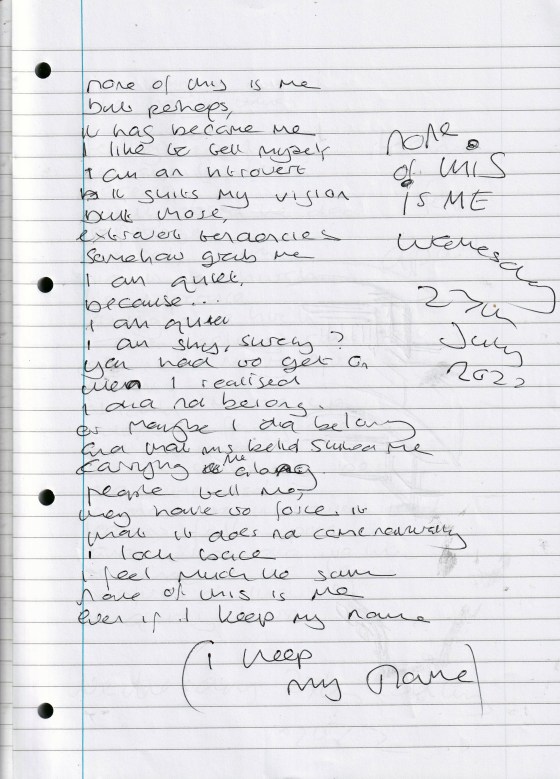 none of this is me
but perhaps,
it has become me
I like to tell myself
I am an introvert
it suits my vision
but those,
extrovert tendencies
somehow grab me
I am quiet,
because...
I am quiet
I am shy, surely?
you had to get on
when I realised
I did not belong.
or maybe I did belong
and that
carrying me along
people tell me,
they have to force it
that it does not come naturally
I look back
I feel much the same
none of this is me
even if I keep my name
(I keep
my name)
none
of this
is ME
Wednesday
27th
July
2022